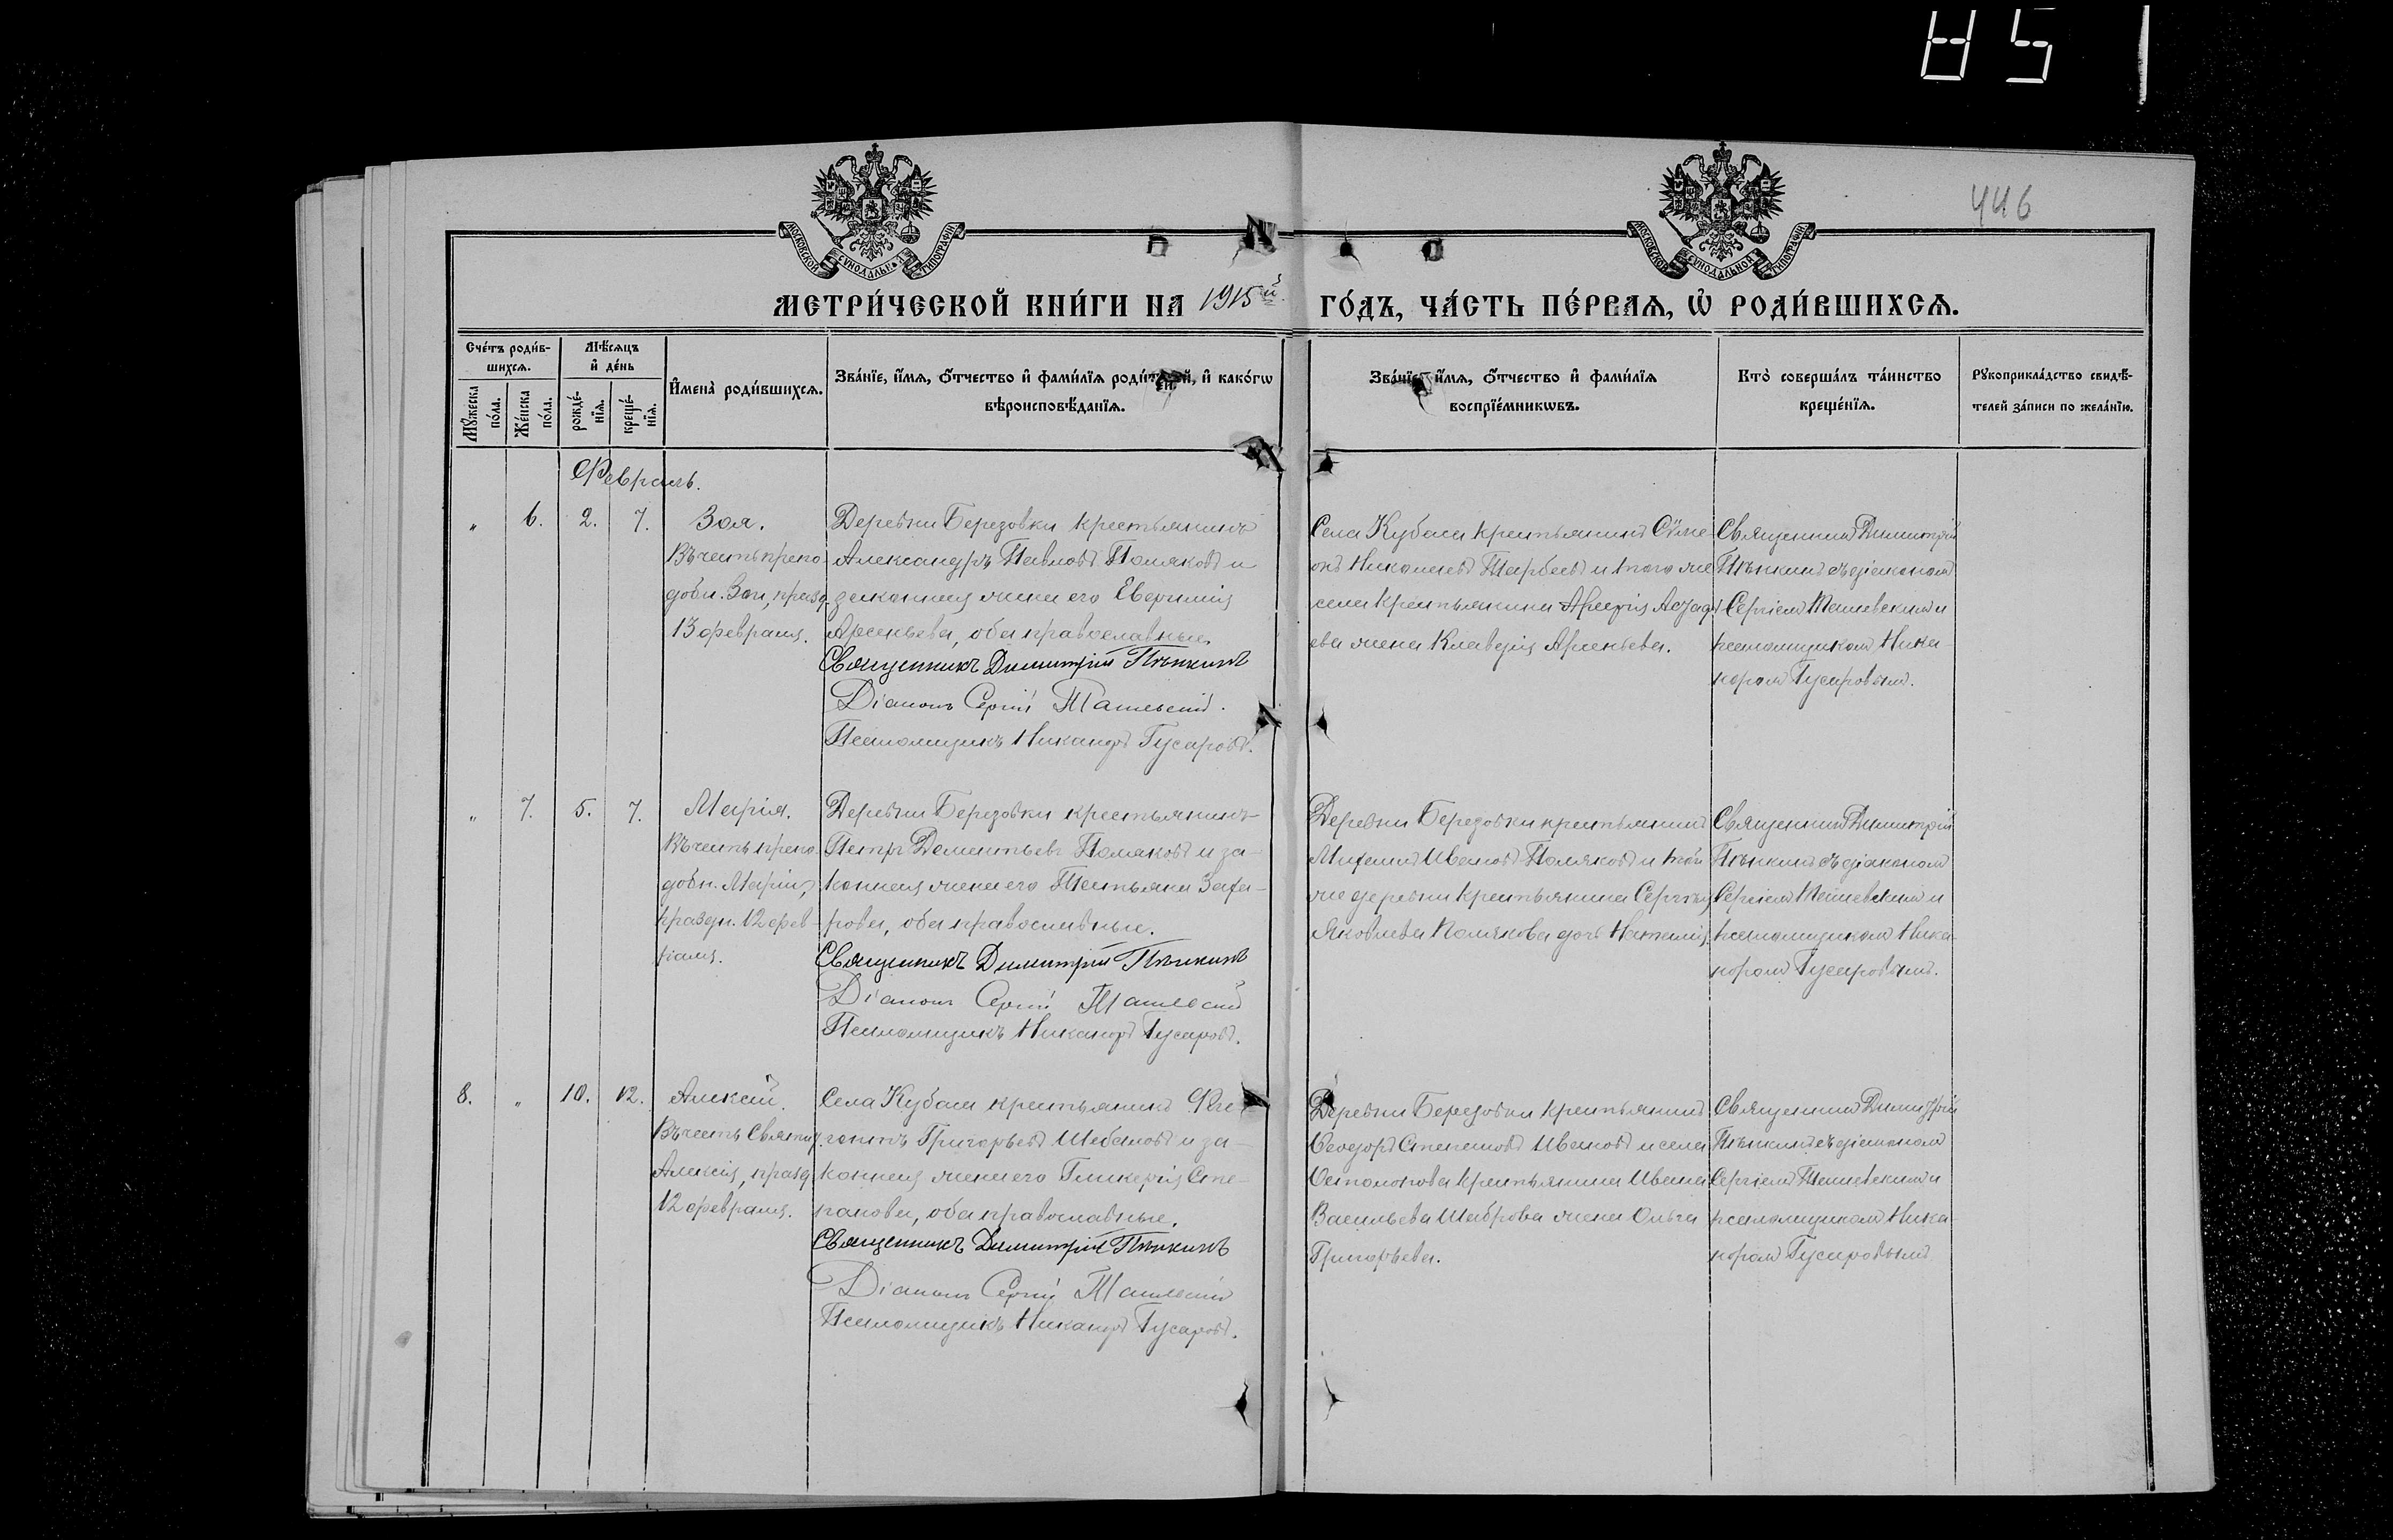 446
МОСКОВСКОЙ СѴНОДАЛЬНОЙ ТИПОГРАФІИ
МОСКОВСКОЙ СѴНОДАЛЬНОЙ ТИПОГРАФІИ
МЕТРИ́ЧЕСКОЙ КНИ́ГИ НА 1915й ГО́ДЪ, ЧА́СТЬ ПЕ́РВАЯ, Ѡ҆ РОДИ́ВШИХСѦ.
Сче́тъ роди́в-
шихсѧ.
Мꙋ́жеска по́ла.
Же́нска по́ла.
Мѣ́сѧцъ
и҆ де́нь
рожде́-
нїѧ.
креще́-
нїѧ.
И҆мена̀ роди́вшихсѧ.
Зва́нїе, и҆́мѧ, ѻ҆́тчество и҆ фами́лїѧ роди́телей, и҆ како́гѡ
вѣроисповѣ́данїѧ.
Зва́нїе, и҆́мѧ, ѻ҆́тчество и҆ фами́лїѧ
воспрїе́мникѡвъ.
Кто̀ соверша́лъ та́инство
креще́нїѧ.
Рꙋкоприкла́дство свидѣ́-
телей за́писи по жела́нїю.
Февраль.
„ 6. 2. 7.
Зоя.
Въ честь препо-
добн. Зои, празд.
13 февраля.
Деревни Березовки крестьянинъ
Александръ Павловъ Поляковъ и
законная жена его Евфимія
Арсеньева, оба православные.
Священникъ Димитрій Пѣнкинъ
Діаконъ Сергій Ташевскій.
Псаломщикъ Никаноръ Гусаровъ.
Села Кубаса крестьянинъ Сѵме-
онъ Николаевъ Тарбеевъ и того же
села крестьянина
ева жена Арсеньева.
Священникъ Димитрій
Пѣнкинъ съ діакономъ
Сергіемъ Ташевскимъ и
псаломщикомъ Ника-
норомъ Гусаровымъ.
„ 7. 5. 7.
Марія.
Въ честь препо-
добн. Маріи,
праздн. 12 фев-
раля.
Деревни Березовки крестьянинъ
Петръ Дементьевъ Поляковъ и за-
конная жена его Татьяна Заха-
рова, оба православные.
Священникъ Димитрій Пѣнкинъ
Діаконъ Сергій Ташевскій
Псаломщикъ Никаноръ Гусаровъ.
Деревни Березовки крестьянинъ
Михаилъ Ивановъ Поляковъ и той
же деревни крестьянина Сергѣя
Яковлева Полякова дочь Наталія.
Священникъ Димитрій
Пѣнкинъ съ діакономъ
Сергіемъ Ташевскимъ и
псаломщикомъ Ника-
норомъ Гусаровымъ.
8. „ 10. 12.
Алексій.
Въ честь Святит.
Алексія, празд.
12 февраля.
Села Кубаса крестьянинъ
Григорьевъ Шабаловъ и за-
конная жена его Гликерія Сте-
панова, оба православные.
Священникъ Димитрій Пѣнкинъ
Діаконъ Сергій Ташевскій
Псаломщикъ Никаноръ Гусаровъ.
Деревни Березовки крестьянинъ
Ѳеодоръ Степановъ Ивановъ и села
Остолопова крестьянина Ивана
Васильева Шаброва жена Ольга
Григорьева.
Священникъ Димитрій
Пѣнкинъ съ діакономъ
Сергіемъ Ташевскимъ и
псаломщикомъ Ника-
норомъ Гусаровымъ